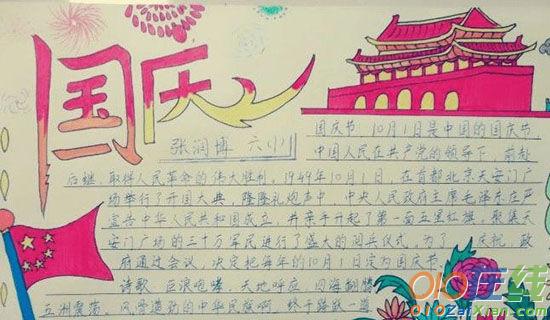 国庆
张润博 六(1)
国庆节,10月1日是中国的国庆节,
中国人民在共产党的领导下,前赴
后继,取得人民革命的伟大胜利,1949年10月1日,在首都北京天安门广
场举行了开国大典,隆隆礼炮声中,中央人民政府主席毛泽东庄严
宣告中华人民共和国成立,并亲手升起了第一面五星红旗,聚集天
安门广场的三十万军民进行了盛大的阅兵仪式,为了 庆祝,政
府通过会议,决定把每年的10月1日定为国庆节,
诗歌,巨浪咆哮,天地呼应,四海翻腾
五洲震荡,风雪造劲的中华民族啊,终于踏破一道
在线
ZaiXian.com